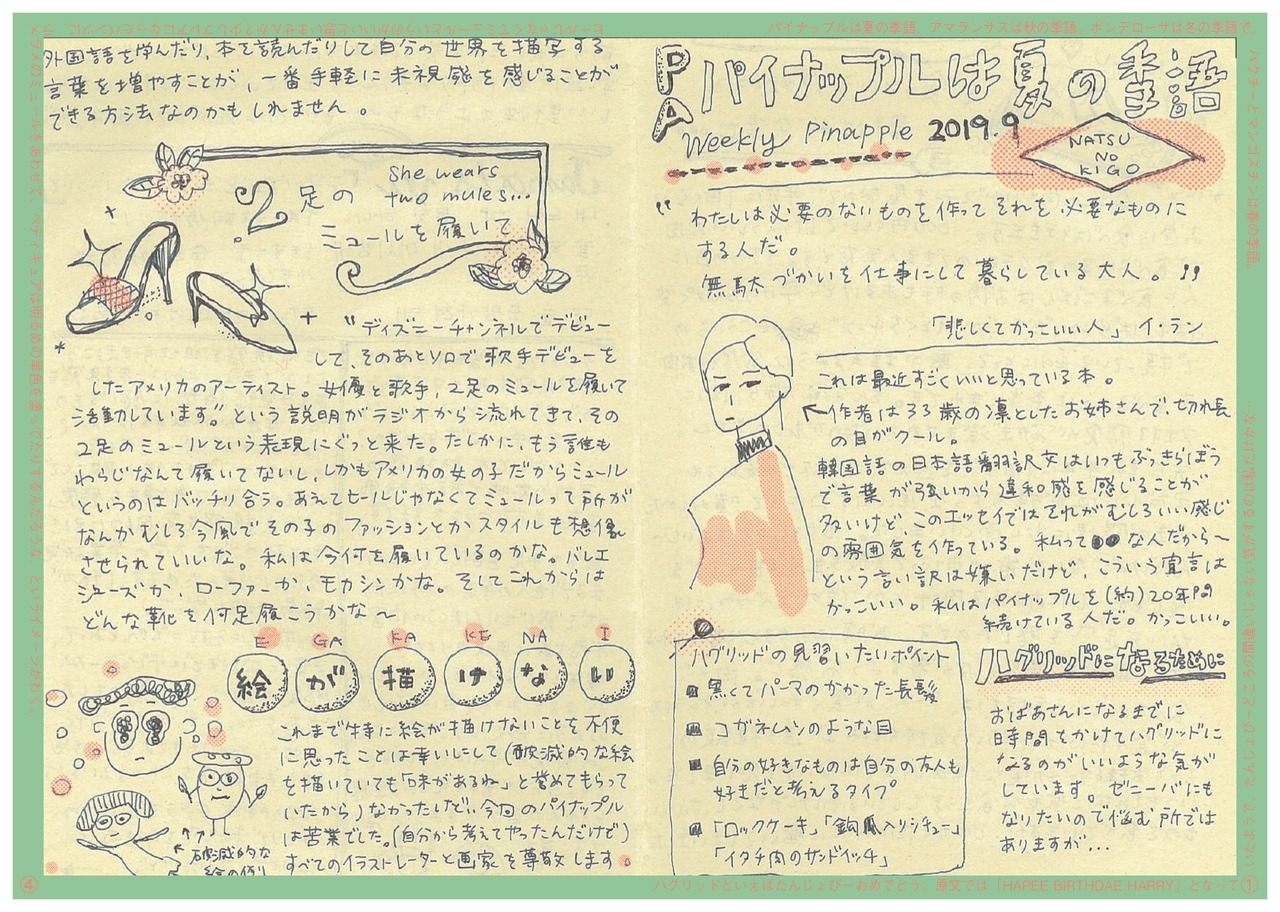 パイナップルは夏の季語、アマランサスは秋の季語、ポンデローサは冬の季語で、
パクチーとマンゴスチンは春の季語
PA パイナップルは夏の季語
Weekly Pinapple 2019.9
NATSU
NO
KIGO
“わたしは必要のないものを作ってそれを必要なものに
する人だ。
無駄づかいを仕事にして暮らしている大人。”
「悲しくてかっこいい人」イ・ラン
これは最近すごくいいと思っている本。
作者は33歳の凛としたお姉さんで、切れ長
の目がクール。
韓国語の日本語翻訳文はいつもぶっきらぼう
で言葉が強いから違和感を感じることが
多いけど、このエッセイではそれがむしろいい感じ
の雰囲気を作っている。私って●●な人だから〜
という言い訳は嫌いだけど、こういう宣言は
かっこいい。私はパイナップルを(約)20年間
続けている人だ。かっこいい。
ハグリッドになるために
おばあさんになるまでに
時間をかけてハグリッドに
なるのがいいような気が
しています。ゼニーバにも
なりたいので悩む所では
ありますが…
ハグリッドの見習いたいポイント
黒くてパーマのかかった長髪
コガネムシのような目
自分の好きなものは自分の友人も
好きだと考えるタイプ
「ロックケーキ」「鉤爪入りシチュー」
「イタチ肉のサンドイッチ」
ハグリッドといえばたんじょびーおめでとう。原文では「HAPEE BIRTHDAE HARRY」となって
①
外国語を学んだり、本を読んだりして自分の世界を描写する
言葉を増やすことが、一番手軽に未視感を感じることが
できる方法なのかもしれません。
She wears
two mules...
2足の
ミュールを履いて
“ディズニーチャンネルでデビュー
して、そのあとソロで歌手デビューを
したアメリカのアーティスト。女優と歌手、2足のミュールを履いて
活動しています”という説明がラジオから流れてきて、その
2足のミュールという表現にぐっと来た。たしかに、もう誰も
わらじなんて履いてないし、しかもアメリカの女の子だからミュール
というのはバッチリ合う。あえてヒールじゃなくてミュールって所が
なんかむしろ今風でその子のファッションとかスタイルも想像
させられていいな。私は今何を履いているのかな。バレエ
シューズか、ローファーか、モカシンかな。そしてこれからは
どんな靴を何足履こうかな〜
E GA KA KE NA I
絵が描けない
これまで特に絵が描けないことを不便
に思ったことは幸いにして(破滅的な絵
を描いていても「味があるね」と誉めてもらって
いたから)なかったけど、今回のパイナップル
は苦業でした。(自分から考えてやったんだけど)
すべてのイラストレーターと画家を尊敬します
破滅的な
絵の例
④